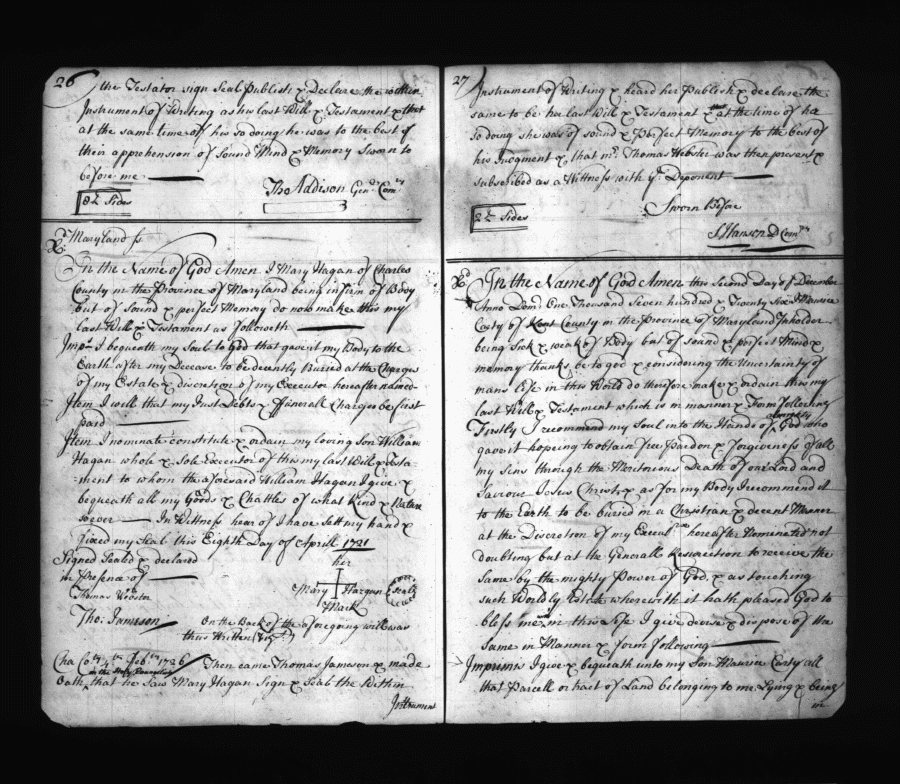 26
the Testator sign Seal Publish & Declare the within
Instrument of Writing as his last Will & Testament & that
at the same time of his so doing he was to the best of
their apprehension of Sound Mind & Memory Sworn to
before me
Tho Addison Gen.ll Com.ry
8½ Sides
Maryland ss
In the Name of God Amen. I Mary Hagan of Charles
County in the Province of Maryland being infirm of Body
but of Sound & perfect Memory do now make this my
last Will & Testament as followeth
Imp.s I bequeath my Soul to God that gave it my Body to the
Earth after my Decease to be decently Buried at the Charges
of my Estate & discretion of my Executor hereafter named
Item I will that my Just Debts & ffunerall Charges be first
paid
Item I nominate constitute & ordain my loving Son William
Hagan whole & Sole Executor of this my last Will & Testa-
ment to whom the aforesaid William Hagan I give &
bequeath all my Goods & Chattles of what Kind & Nature
soever In Wittness hear of I have sett my hand &
fixed my Seal this Eighth Day of Aprill 1721
Signed Sealed & declared
in Presence of
her
Mary Hargan Seal
Mark
Thomas Webster
Tho: Jameson
On the Back of the aforegoing will was
thus Written (viz.t)
Cha Co.ty 4.th Feb.ry 1726 Then came Thomas Jameson & made
Oath that he Saw Mary Hagan Sign & Seal the Within
Instrument
27
Instrument of Writing & heard her Publish & declare the
same to be her last Will & Testament & at the time of her
so doing she was of sound & Perfect Memory to the best of
his Judgment & that m.r Thomas Webster was then present &
subscribed as a Wittness with y.e Deponent
Sworn Before
S Hanson D Com.ry
2½ Sides
In the Name of God Amen this Second Day of December
Anno Dom: One Thousand Seven hundred & Twenty Six I Maurice
Carty of Kent County in the Province of Maryland Inholder
being Sick & weak of Body but of sound & perfect Mind &
memory thanks be to god & considering the Uncertainty of
mans life in this World do therefore make & ordain this my
last Will & Testament which is in manner & Form following
Firstly I recommend my Soul into the Hands of Almighty God who
gave it hoping to obtain free Pardon & forgiveness of all
my Sins through the Meritorious Death of our Lord and
Saviour Jesus Christ & as for my Body I recommend it
to the Earth to be buried in a Christian & decent Manner
at the Discretion of my Execut.rs hereafter Nominated not
doubting but at the Generall Resurrection to receive the
same by the mighty Power of God & as touching
such Worldly Estate wherewith it hath pleased God to
bless me in this Life I give devise & dispose of the
same in Manner & form following
Imprimis I give & bequeath unto my Son Maurice Carty all
that Parcell or tract of Land belonging to me Lying & being
in